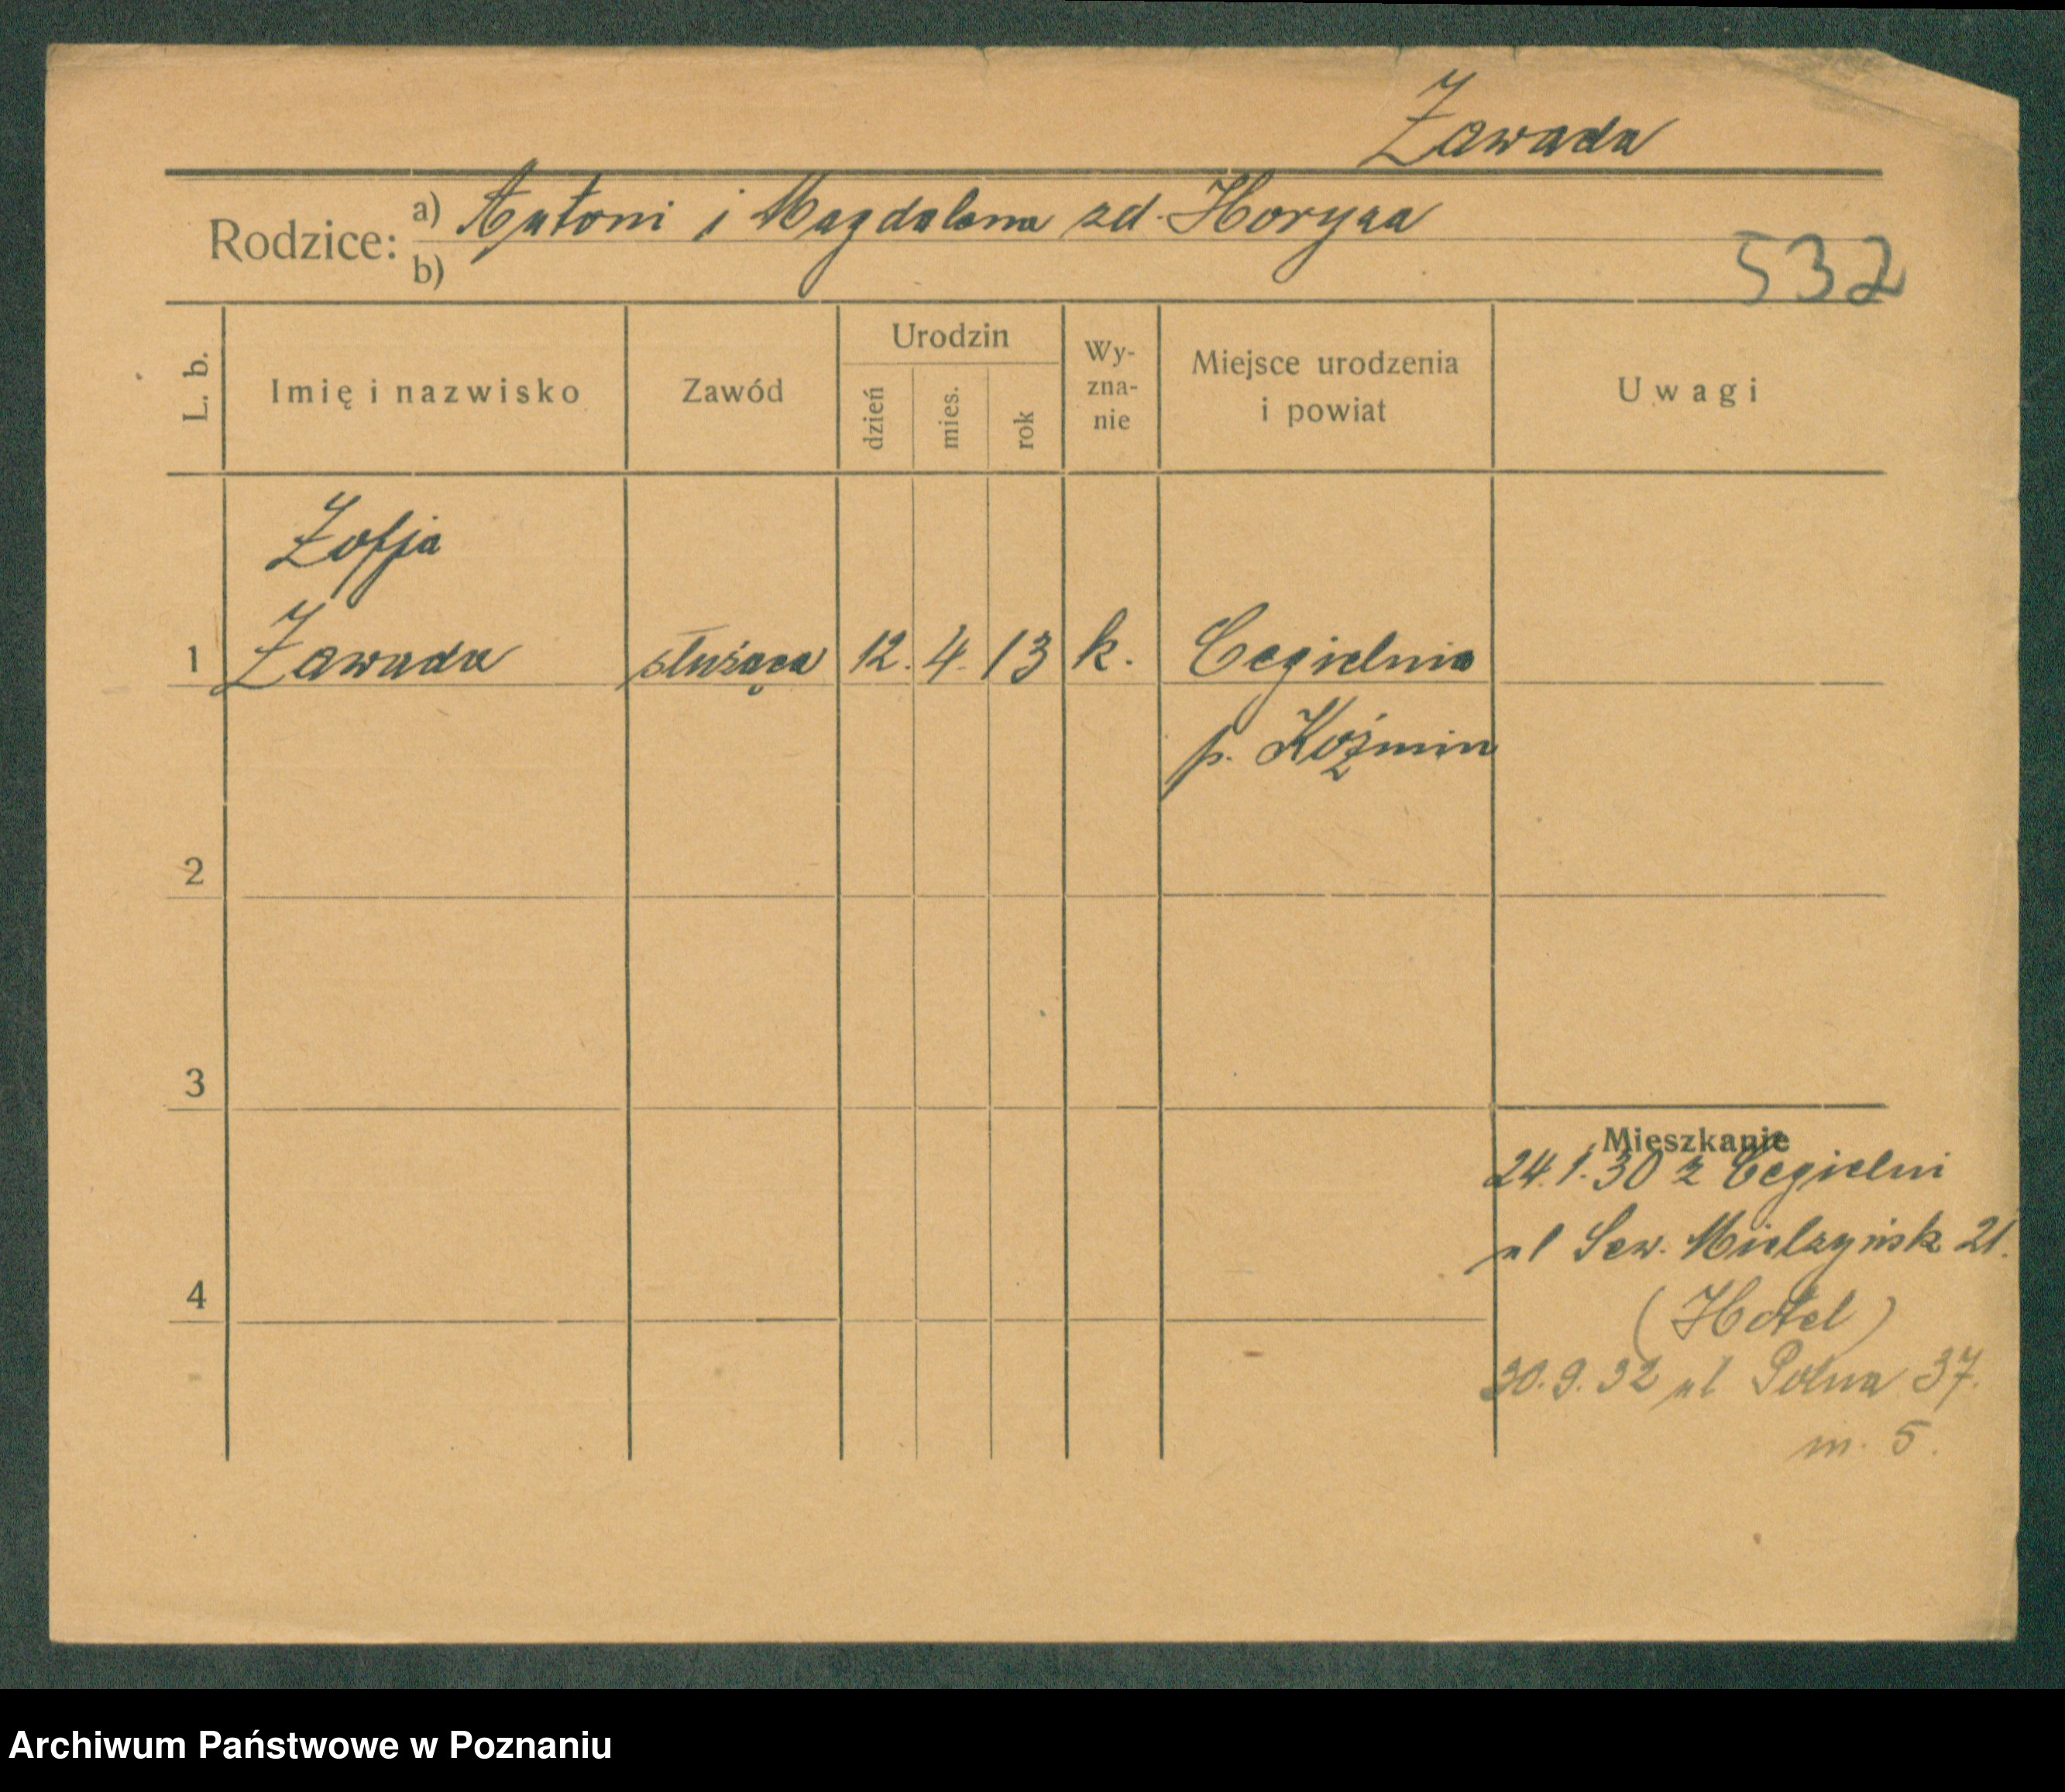 Zawada
Rodzice: a) Antoni i Magdalena zd. Horyza
b)
532
L. b.
Imię i nazwisko
Zawód
Urodzin
dzień
mies.
rok
Wy-
zna-
nie
Miejsce urodzenia
i powiat
Uwagi
Zofja
1 Zawada służąca 12. 4. 13 k. Cegielnia
p. Koźmin
2
3
Mieszkanie
24.1.30 z Cegielni
ul Sew. Mielżyńsk 21.
4
(Hotel)
30.9.32 ul Polna 37.
m. 5.
Archiwum Państwowe w Poznaniu